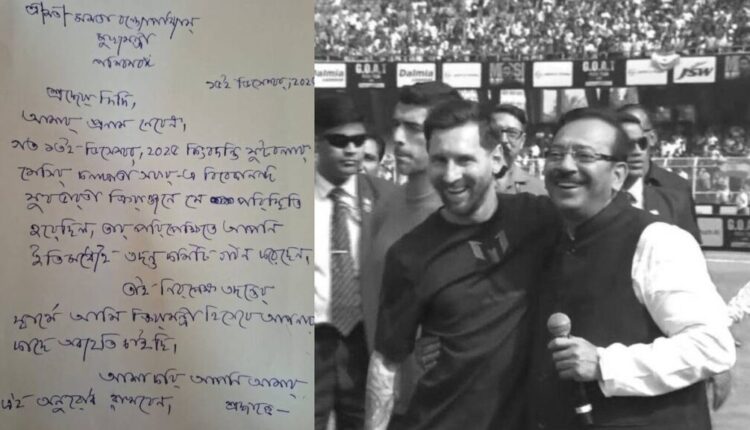 শ্রীমতী মমতা বন্দ্যোপাধ্যায়
মুখ্যমন্ত্রী
পশ্চিমবঙ্গ
ডিসেম্বর, ২০২৫
শ্রদ্ধেয় দিদি,
আমার প্রণাম নেবেন।
গত ১৩ই ডিসেম্বর, ২০২৫ কিংবদন্তি ফুটবলার
মেসির কলকাতা সফর-এ বিবেকানন্দ
যুবভারতী ক্রীড়াঙ্গনে যে পরিস্থিতি
হয়েছিল, তার পরিপ্রেক্ষিতে আপনি
ইতিমধ্যেই তদন্ত কমিটি গঠন করেছেন।
তাই নিরপেক্ষ তদন্তের
স্বার্থে আমি ক্রীড়ামন্ত্রী হিসেবে আপনার
কাছে অব্যাহতি চাইছি।
আশা করি আপনি আমার
এই অনুরোধ রাখবেন। শ্রদ্ধান্তে—
Dalmia G.O.A.T Dalmia G.O.A.T JSW